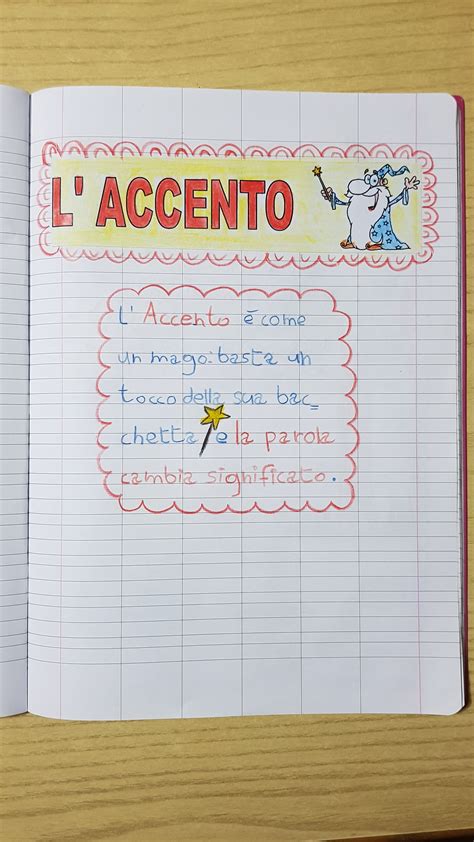 L' ACCENTO
L' Accento è come
un mago: basta un
tocco della sua bac=
chetta e la parola
cambia significato.